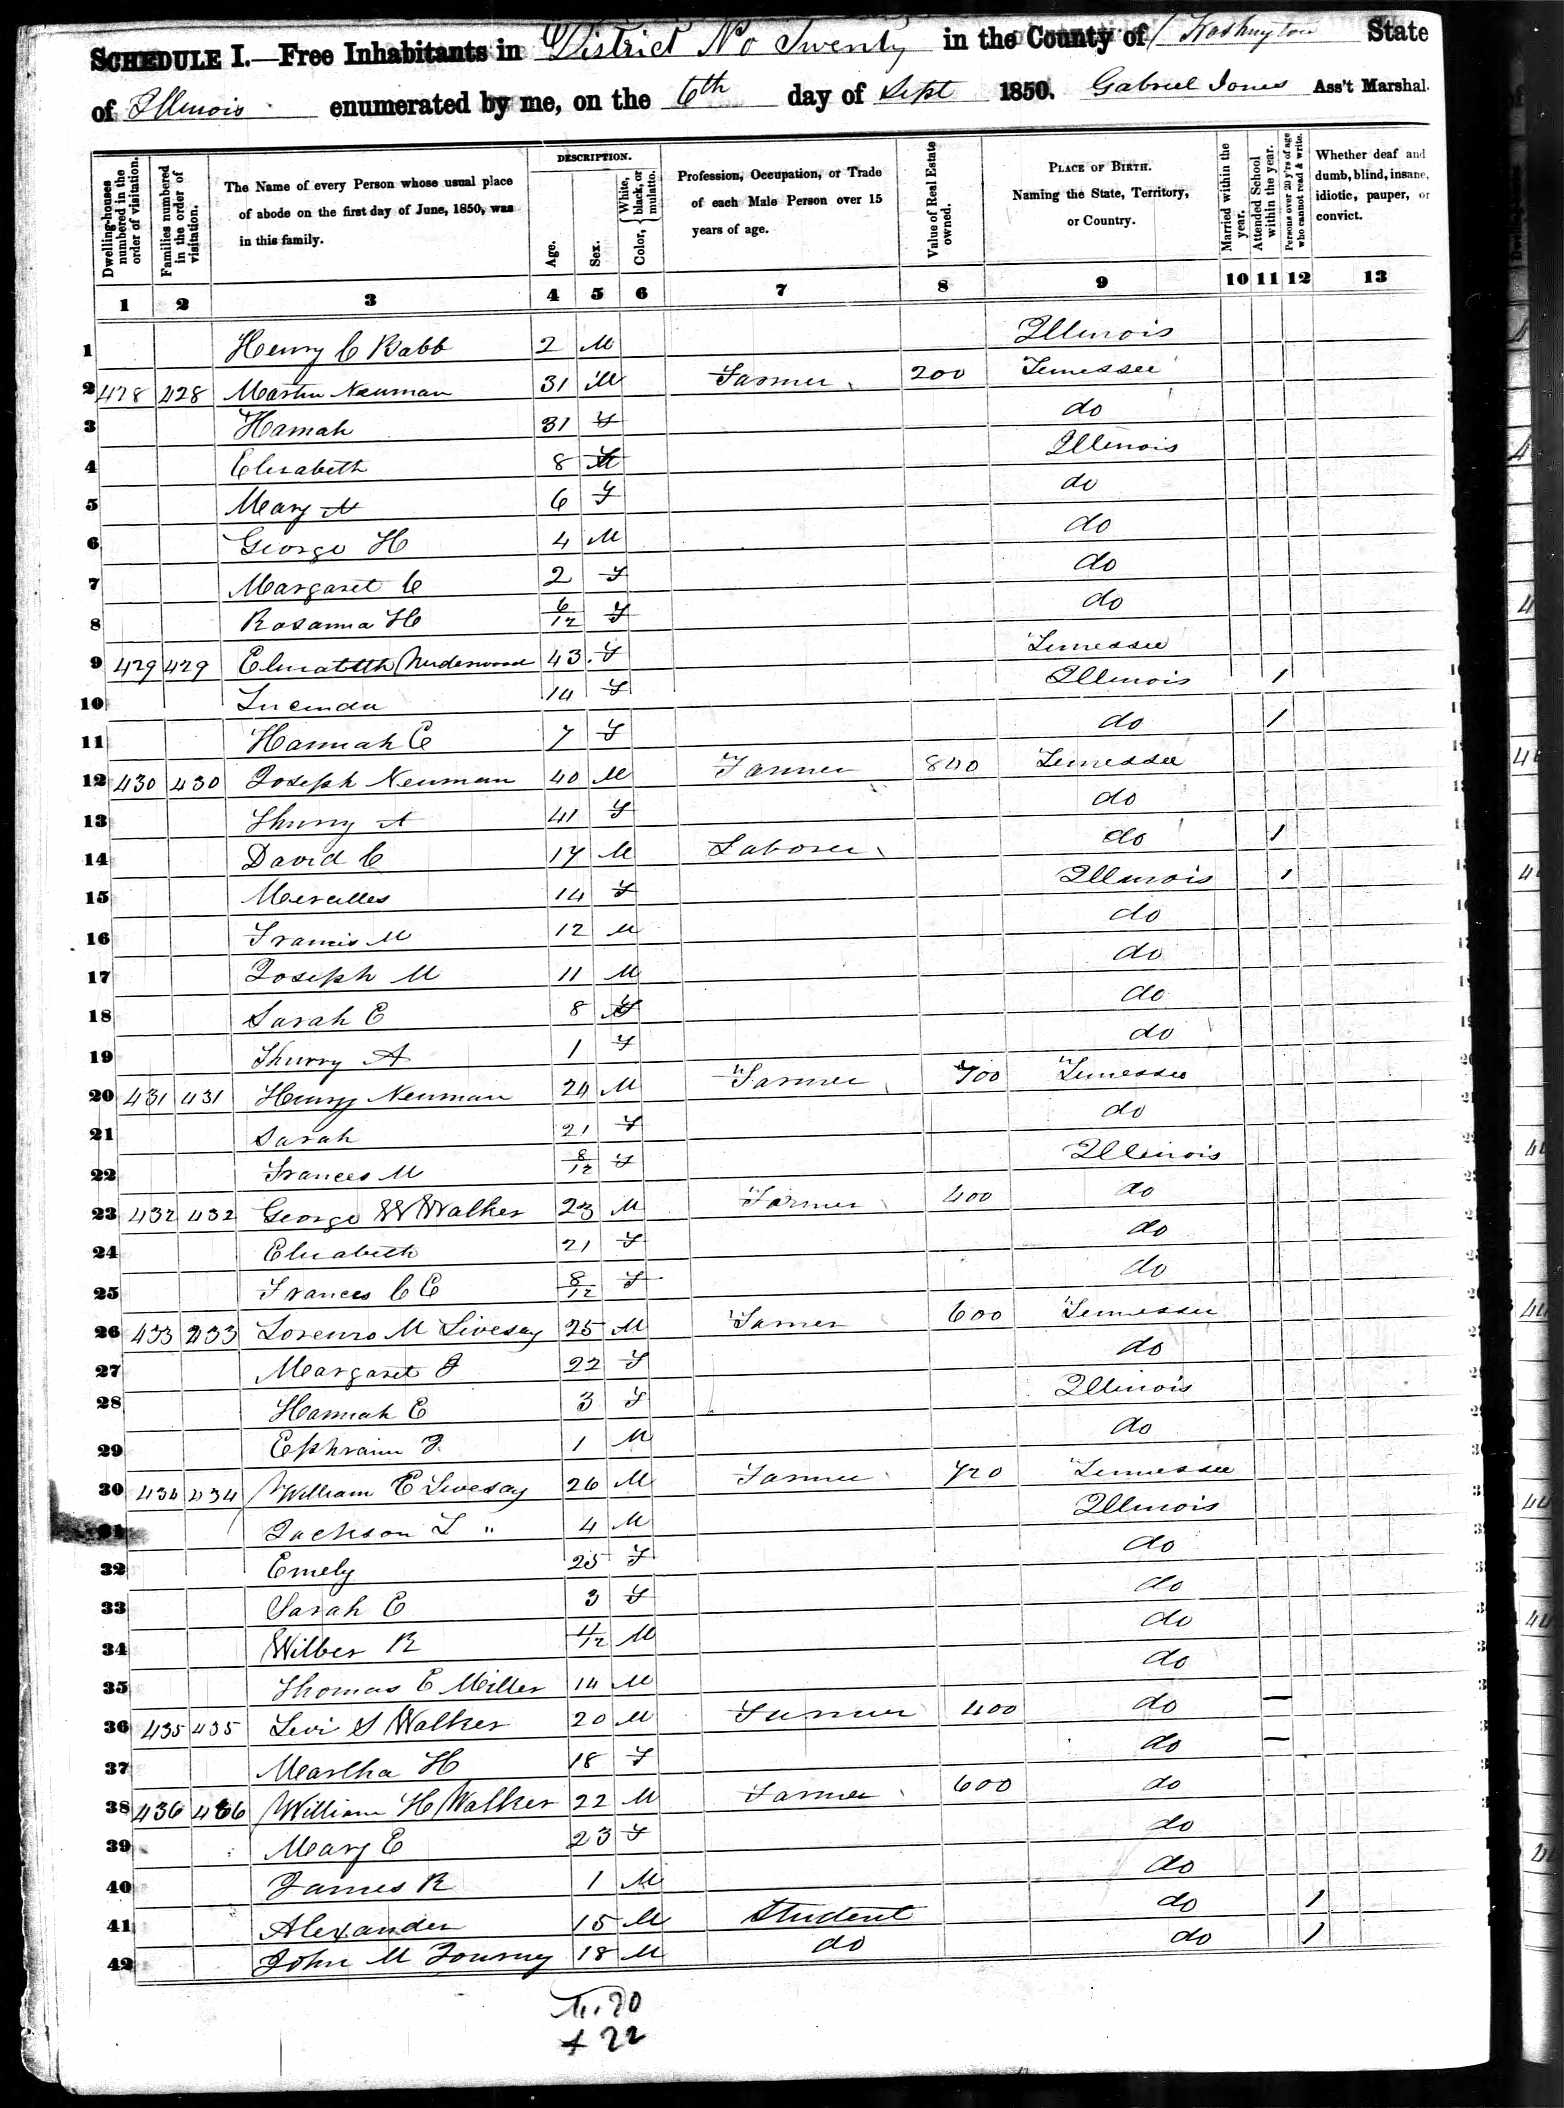 SCHEDULE I.—Free Inhabitants in District No Twenty in the County of Washington State
of Illinois enumerated by me, on the 6th day of Sept 1850. Gabriel Jones Ass't Marshal.
Dwelling-houses numbered in the order of visitation.
Families numbered in the order of visitation.
The Name of every Person whose usual place of abode on the first day of June, 1850, was in this family.
DESCRIPTION.
Age.
Sex.
Color, { White, black, or mulatto.
Profession, Occupation, or Trade of each Male Person over 15 years of age.
Value of Real Estate owned.
PLACE OF BIRTH. Naming the State, Territory, or Country.
Married within the year.
Attended School within the year.
Persons over 20 y'rs of age who cannot read & write.
Whether deaf and dumb, blind, insane, idiotic, pauper, or convict.
1 2 3 4 5 6 7 8 9 10 11 12 13
1 Henry C Babb 2 M Illinois
2 428 428 Martin Neuman 31 M Farmer 200 Tennessee
3 Hannah 31 F do
4 Elisabeth 8 F Illinois
5 Mary A 6 F do
6 George H 4 M do
7 Margaret C 2 F do
8 Rosanna H 6/12 F do
9 429 429 Elisabeth Underwood 43 F Tennessee
10 Lucinda 14 F Illinois 1
11 Hannah E 7 F do 1
12 430 430 Joseph Neuman 40 M Farmer 800 Tennessee
13 Thurzy A 41 F do
14 David C 17 M Laborer do 1
15 14 F Illinois 1
16 Francis M 12 M do
17 Joseph M 11 M do
18 Sarah E 8 F do
19 Thurzy A 1 F do
20 431 431 Henry Neuman 24 M Farmer 700 Tennessee
21 Sarah 21 F do
22 Frances M 8/12 F Illinois
23 432 432 George W Walker 23 M Farmer 400 do
24 Elisabeth 21 F do
25 Frances C E 8/12 F do
26 433 433 Lorenzo M Livesay 25 M Farmer 600 Tennessee
27 Margaret J 22 F do
28 Hannah E 3 F Illinois
29 Ephraim J. 1 M do
30 434 434 William E Livesay 26 M Farmer 720 Tennessee
31 Jackson L " 4 M Illinois
32 Emely 25 F do
33 Sarah E 3 F do
34 Wilber R 4/12 M do
35 Thomas E Miller 14 M do
36 435 435 Levi S Walker 20 M Farmer 400 do —
37 Martha H 18 F do —
38 436 436 William H Walker 22 M Farmer 600 do
39 Mary E 23 F do
40 James R 1 M do
41 Alexander 15 M Student do 1
42 John M 18 M do do 1
20
22